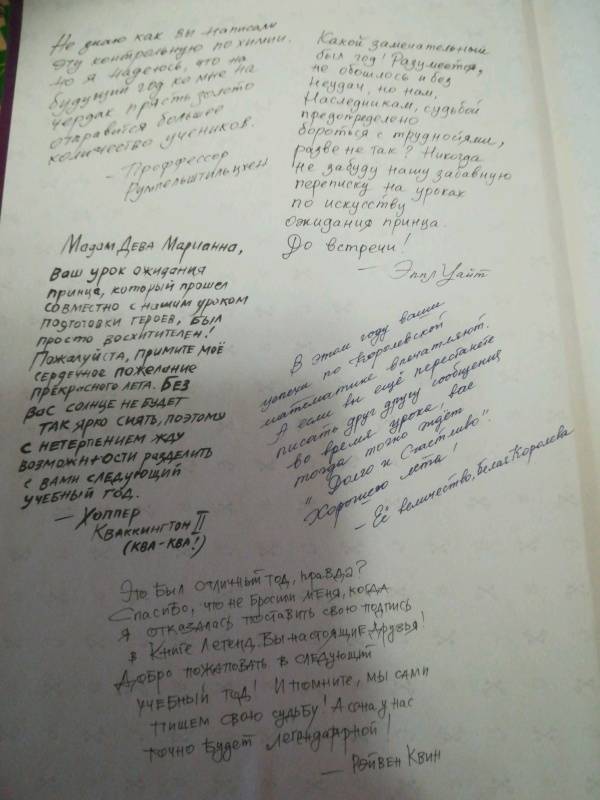 Не знаю как вы написали
эту контрольную по химии.
Но я надеюсь, что на
будущий год ко мне на
чердак прясть золото
отправится большее
количество учеников.
– Проффессор
Румпельштильцхен
Какой замечательный
был год! Разумеется,
не обошлось и без
неудач, но нам,
Наследникам, судьбой
предопределено
бороться с трудностями,
разве не так? Никогда
не забуду нашу забавную
переписку на уроках
по искусству
ожидания принца.
До встречи!
– Эппл Уайт
Мадам Дева Марианна,
ваш урок ожидания
принца, который прошел
совместно с нашим уроком
подготовки героев, был
просто восхитителен!
Пожалуйста, примите моё
сердечное пожелание
прекрасного лета. Без
вас солнце не будет
так ярко сиять, поэтому
с нетерпением жду
возможности разделить
с вами следующий
учебный год.
– Хоппер
Кваккингтон II
(ква-ква!)
В этом году ваши
успехи по Королевской
математике впечатляют.
А если вы ещё перестанете
писать друг другу сообщения
во время урока, вас
тогда точно ждёт
"Долго и Счастливо".
Хорошего лета!
– Её величество, Белая Королева
Это был отличный год, правда?
Спасибо, что не бросили меня, когда
я отказалась поставить свою подпись
в Книге Легенд. Вы настоящие друзья!
Добро пожаловать в следующий
учебный год! И помните, мы сами
пишем свою судьбу! А она у нас
точно будет легендарной!
– Рэйвен Квин